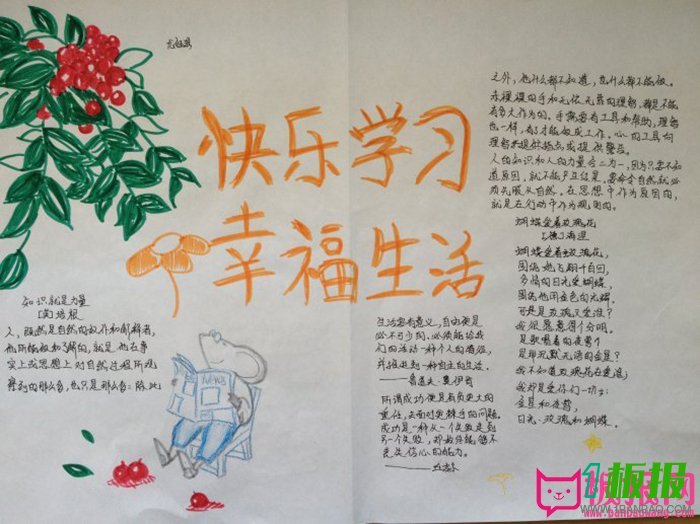 快乐学习
幸福生活
知识就是力量
[英]培根
人，既然是自然的奴仆和解释者，
他所能做和了解的，就是他在事
实上或思想上对自然过程所观
察到的那么多，也只是那么多；除此
之外，他什么都不知道，也什么都不能做。
NEWS
生活要有意义，自由便是
必不可少的，必须能给我
所谓成功便是肩负更大的
重任，去面对更棘手的问题。
成功是一种从一个失败走到
另一个失败，却始终能够不
丧失信心的能力。
——丘吉尔
赤裸裸的手和无依无靠的理智，都是不能
有多大作为的。手需要有工具和帮助，理智
也一样，有了才能做成工作。心的工具向
理智来提供指点或提供警告。
人的知识和人的力量合二为一，因为只要不知
道原因，就不能产生结果。要命令自然就必
须先服从自然。在思想中作为原因的，
就是在行动中作为规则的。
蝴蝶爱着玫瑰花
[德]海涅
蝴蝶爱着玫瑰花，
围绕她飞翔千百回，
多情的日光爱蝴蝶，
围绕他用金色的光辉。
可是是玫瑰又爱谁？
我很愿意得个分明。
是歌唱着的夜莺？
是那沉默无语的金星？
我不知道玫瑰花在爱谁；
我却是爱你们一切：
金星和夜莺，
日光、玫瑰和蝴蝶。
板报网
www.banbaowang.com
1板报
WWW.1BANBAO.COM